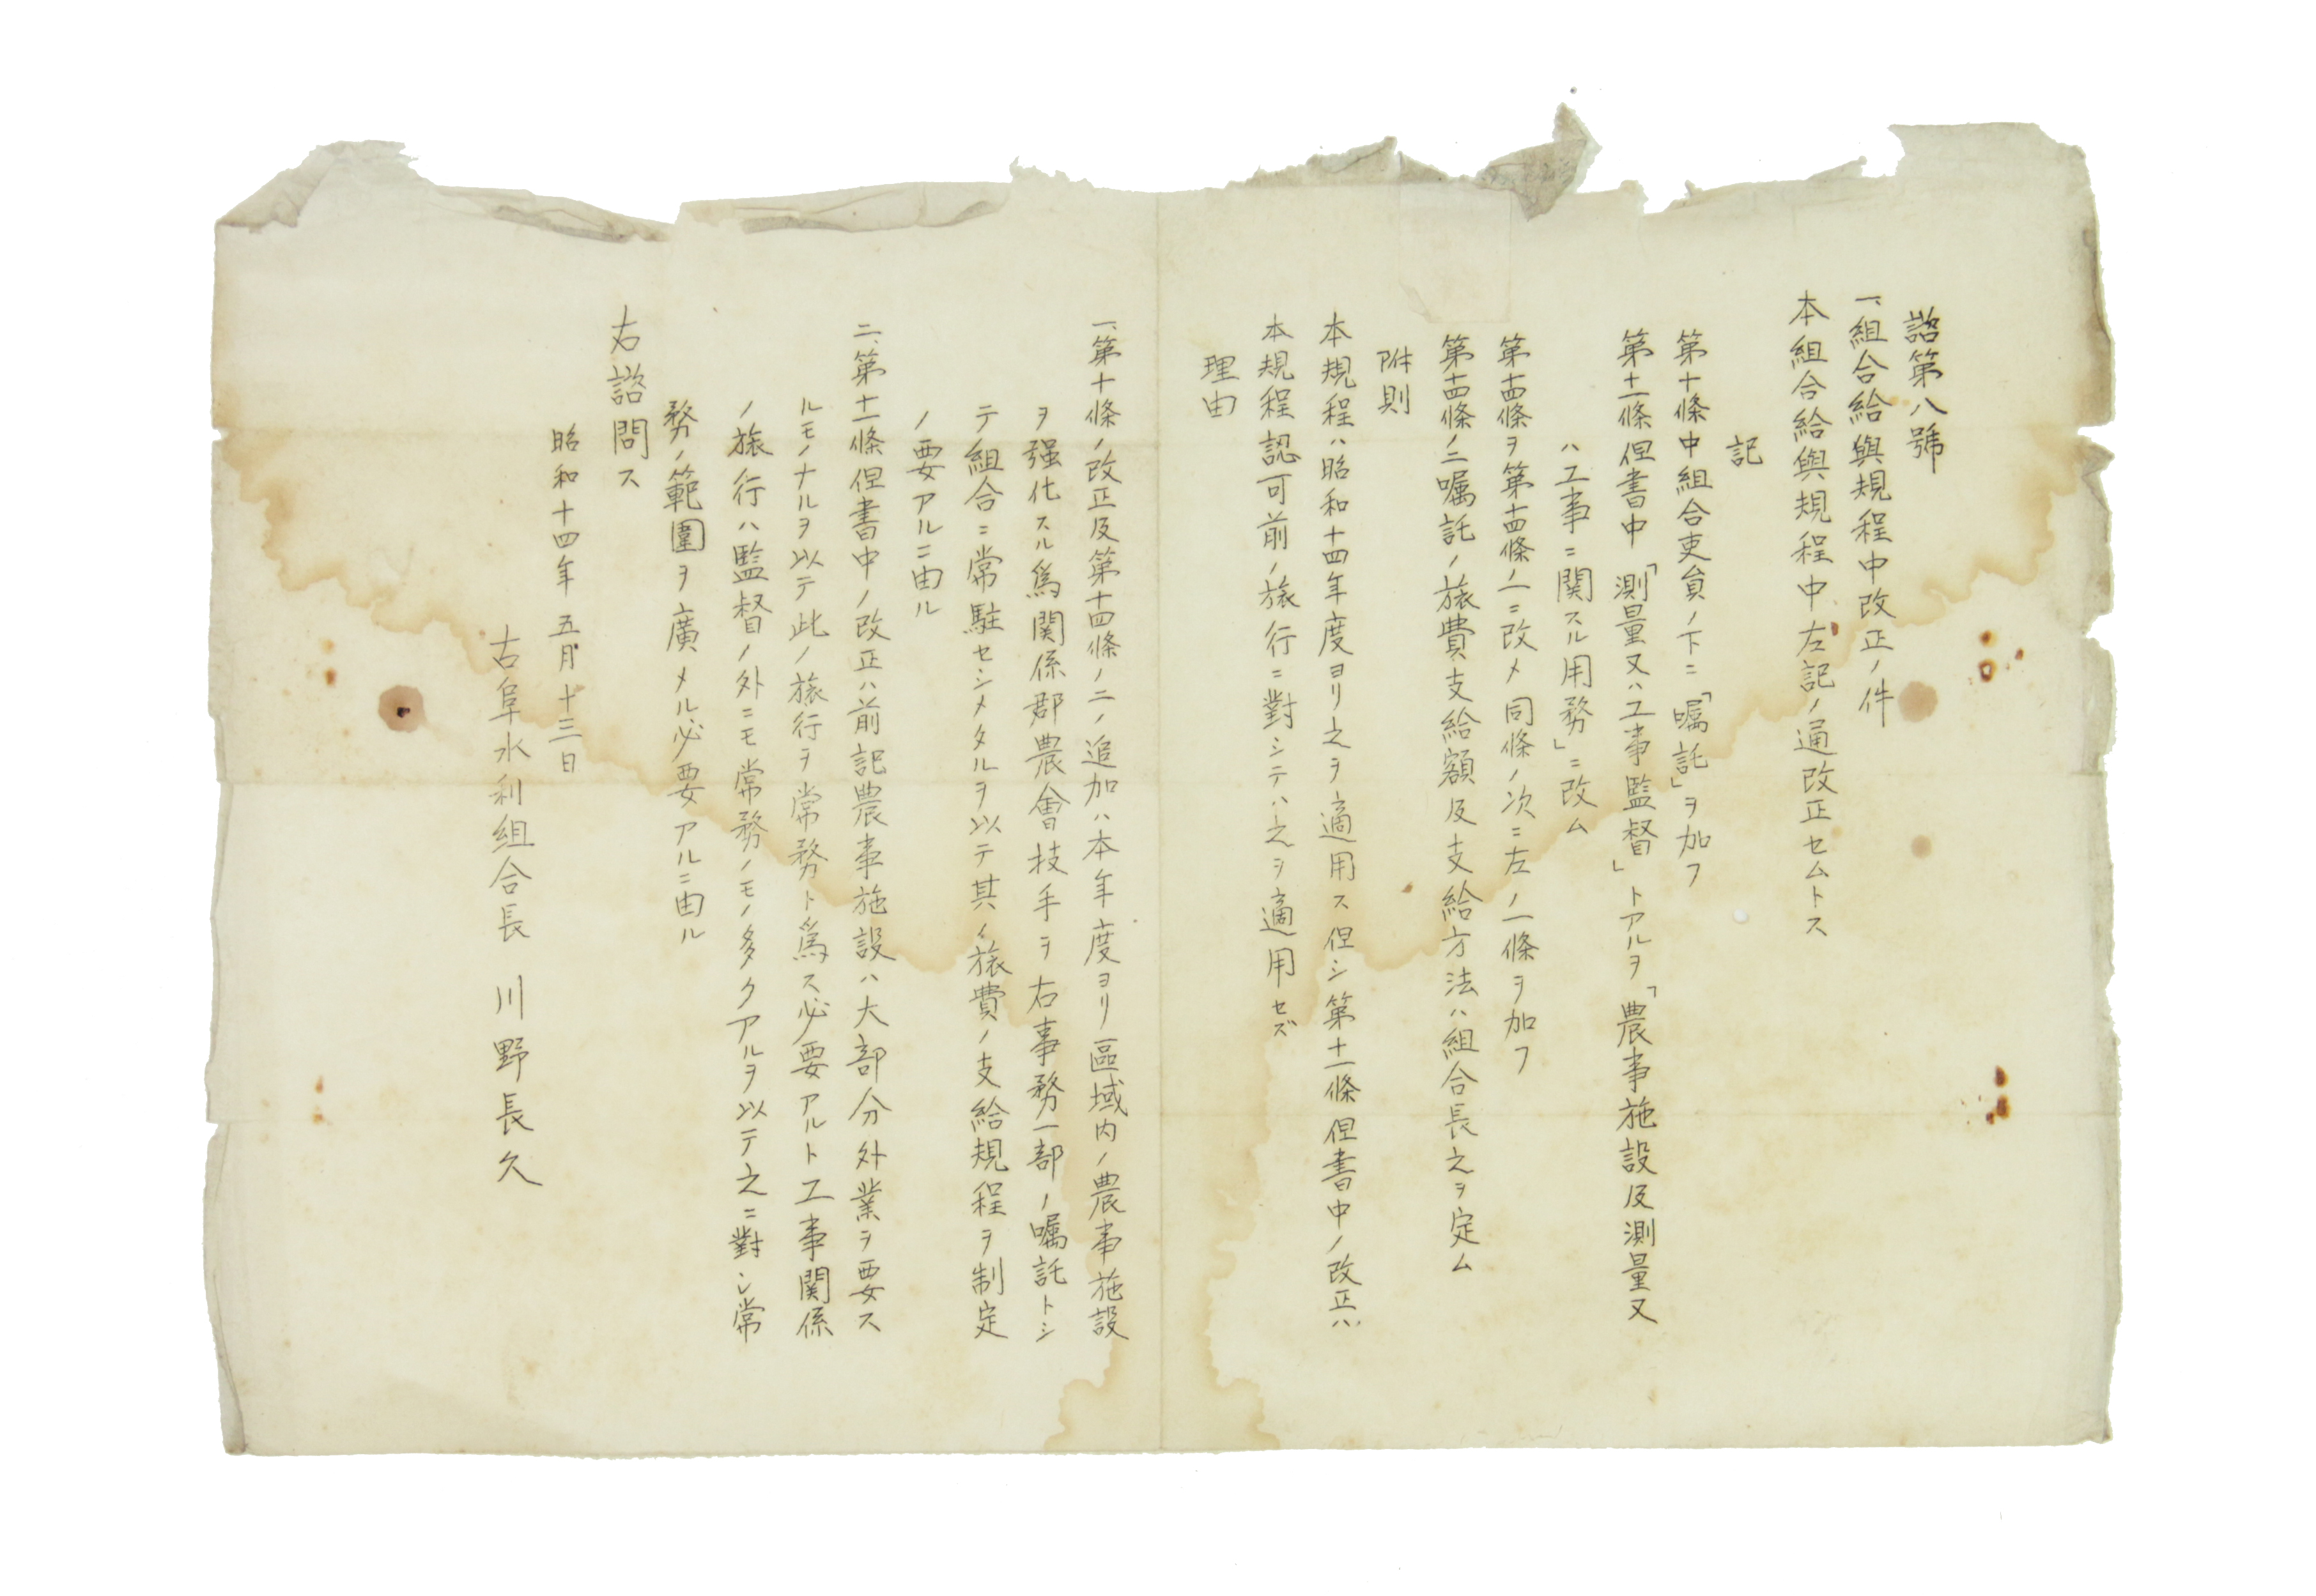 諮第八號
一、組合給與規程中改正ノ件
本組合給與規程中左記ノ通改正セムトス
記
第十條中組合吏員ノ下ニ「嘱託」ヲ加フ
第十一條但書中「測量又ハ工事監督」トアルヲ「農事施設及測量又
ハ工事ニ関スル用務」ニ改ム
第十四條ヲ第十四條ノ一ニ改メ同條ノ次ニ左ノ一條ヲ加フ
第十四條ノ二嘱託ノ旅費支給額及支給方法ハ組合長之ヲ定ム
附則
本規程ハ昭和十四年度ヨリ之ヲ適用ス但シ第十一條但書中ノ改正ハ
本規程認可前ノ旅行ニ對シテハ之ヲ適用セズ
理由
一、第十條ノ改正及第十四條ノ二ノ追加ハ本年度ヨリ區域内ノ農事施設
ヲ强化スル爲関係郡農會技手ヲ右事務一部ノ嘱託トシ
テ組合ニ常駐セシメタルヲ以テ其ノ旅費ノ支給規程ヲ制定
ノ要アルニ由ル
二、第十一條但書中ノ改正ハ前記農事施設ハ大部分外業ヲ要ス
ルモノナルヲ以テ此ノ旅行ヲ常務ト爲ス必要アルト工事関係
ノ旅行ハ監督ノ外ニモ常務ノモノ多クアルヲ以テ之ニ對シ常
務ノ範圍ヲ廣メル必要アルニ由ル
右諮問ス
昭和十四年五月十三日
古阜水利組合長 川野長久